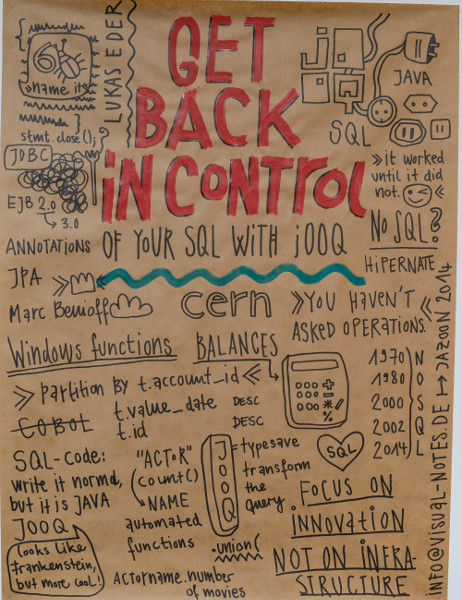 LUKAS EDER
GET
BACK
iN CONTROL
OF YOUR SQL WITH jOOQ
6
name it:
stmt.close();
JDBC
?
EJB 2.0
3.0
ANNOTATIONS
JPA
Marc Benioff
jO
OQ
JAVA
SQL
»it worked
until it did
not. «
No SQL?
HiPERNATE
cern
»YOU HAVEN'T «
ASKED OPERATIONS.
Windows functions
BALANCES
» partition BY t.account_id «
COBOL
t.value_date DESC
t.id DESC
1970
1980
2000
2002
2014
NOSQL
SQL
SQL-CODE:
write it normal,
but it is JAVA
JOOQ
looks like
Frankenstein,
but more cool!
"ACToR"
(count()
NAME
automated
functions
JOOQ
= typesave
transform
the
query
.union(
ACTORname.number
of movies
FOCUS ON
iNNOVATiON
NOT ON INFRA-
STRUCTURE
INFO@VISUAL-NOTES.DE JAZOON 2014